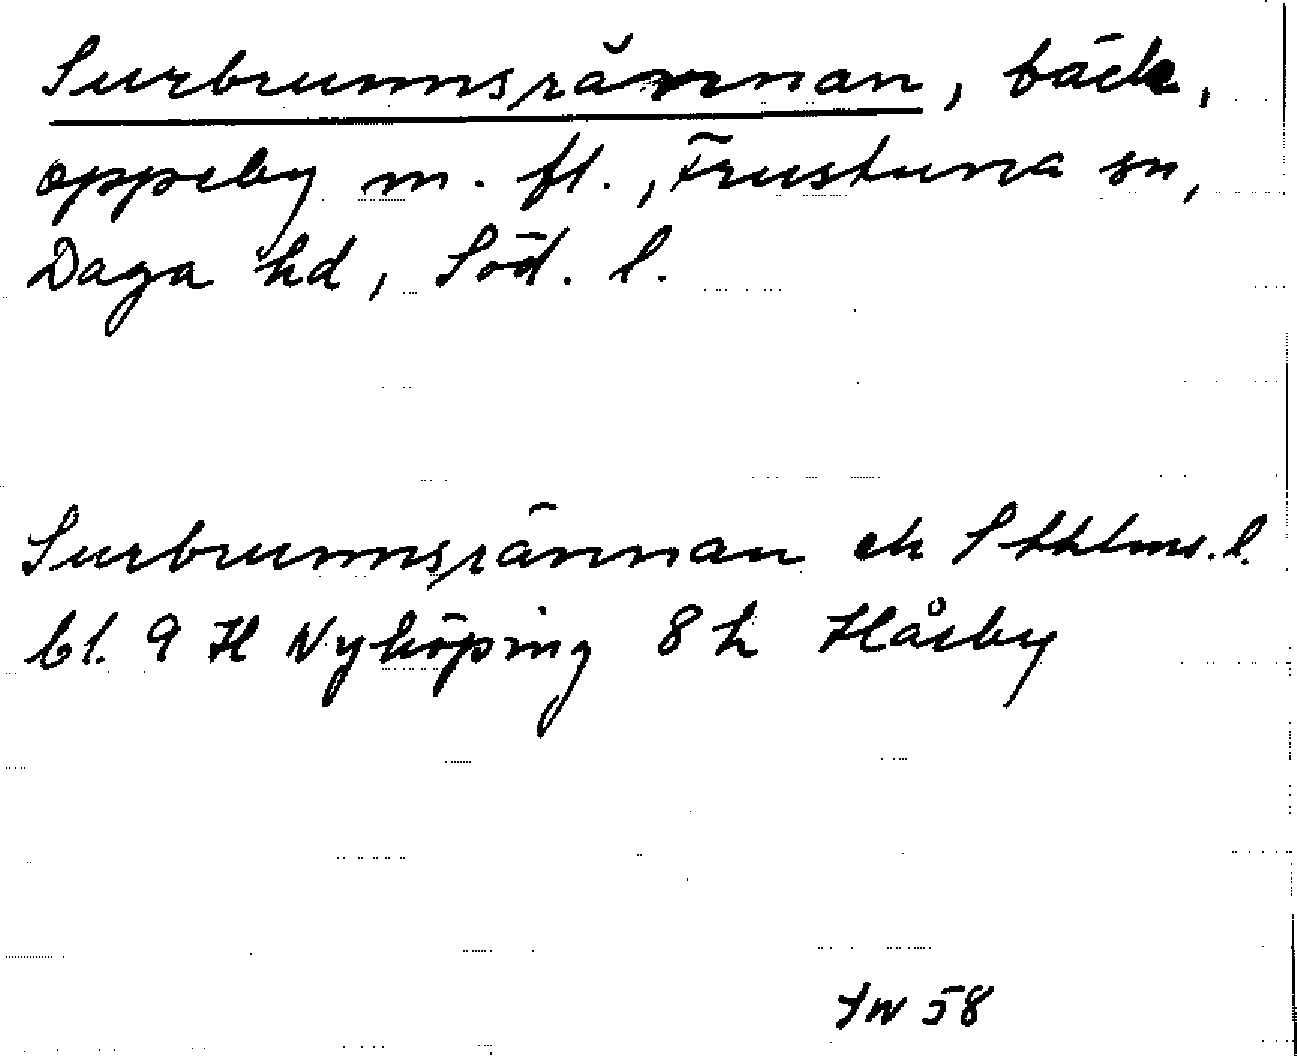 Surbrunnsrännan, bäck,
Oppeby m. fl., Frustuna sn,
Daga hd, Söd. l.
Surbrunnsrännan ek Sthlms. l.
bl. 9 H Nyköping 8 h Håsby
58